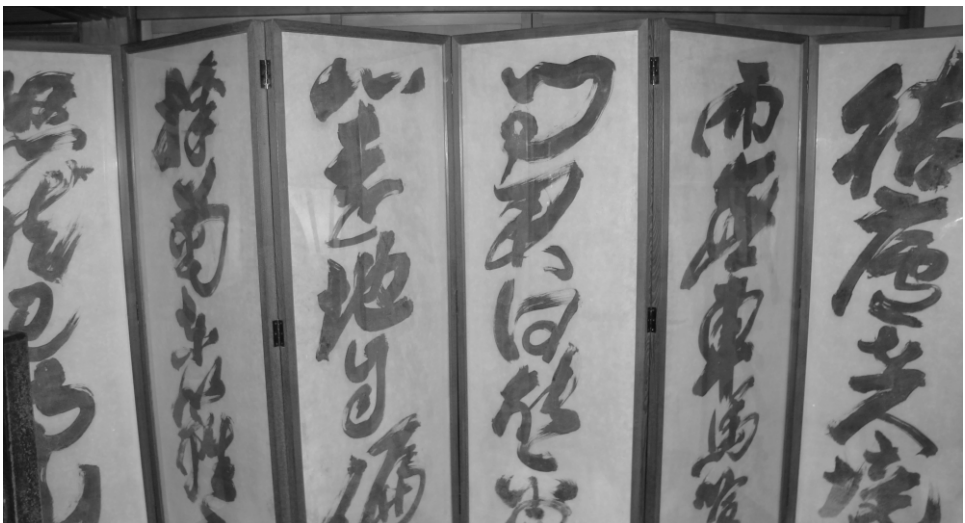 結廬在人境
而無車馬喧
問君何能爾
心遠地自偏
採菊東籬
悠然見南山